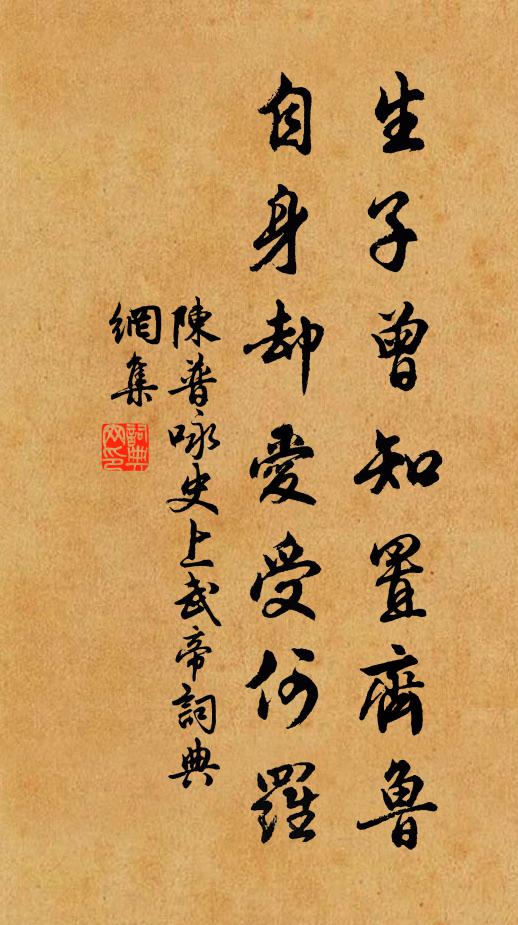 生子曾知置齊魯
自身却愛受何羅
陳普咏史上武帝詞典
網集
詞典
网印